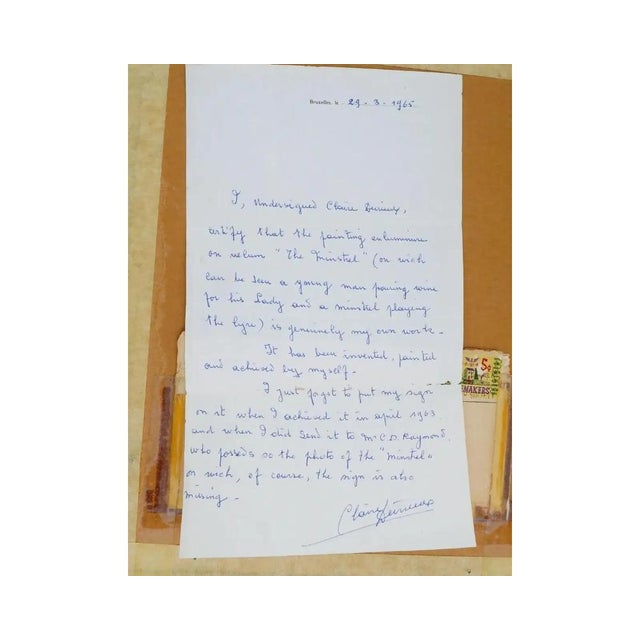 Bruxelles, le 29 - 3 - 1965
I, Undersigned Claire
certify that the painting, enluminure
on velum "The Minstrel" (on wich
can be seen a young man pouring wine
for his Lady and a minstrel playing
the lyre) is genuinely my own work -
It has been invented, painted
and achieved by myself -
I just forgot to put my sign
on it when I achieved it in april 1963
and when I did send it to Mr C.D. Raymond,
who posseds so the photo of the "Minstrel"
on wich, of course, the sign is also
missing -
Claire
5¢
MAKERS